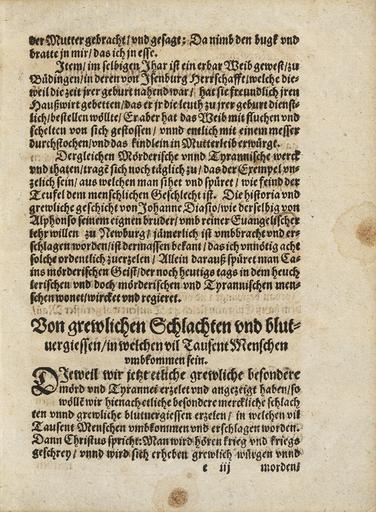 der Mutter gebracht/ vnd gesagt: Da nimb den bugk vnd
bratte jn mir/ das ich jn esse.
Item/ im selbigen Jhar ist ein erbar Weib gewest/ zu
Büdingen/ in deren von Jsenburg Herrschafft/ welche die-
weil die zeit jrer geburt nahend war/ hat sie freundlich jren
Haußwirt gebetten/ das er jr die leuth zu jrer geburt dienst-
lich/ bestellen wöllte/ Er aber hat das Weib mit fluchen vnd
schelten von sich gestossen/ vnnd entlich mit einem messer
durchstochen/ vnd das kindlein in Mutterleib erwürgt.
Dergleichen Mörderische vnnd Tyrannische werck
vnd thaten/ tragē sich noch täglich zu/ das der Exempel vn-
zelich sein/ aus welchen man sihet vnd spüret/ wie feind der
Teufel dem menschlichen Geschlecht ist. Die historia vnd
grewliche geschicht von Johanne Diasio/ wie derselbig von
Alphonso seinem eignen bruder/ vmb reiner Euangelischer
lehr willen zu Newburg/ jämerlich ist vmbbracht vnd er-
schlagen worden/ ist dermassen bekant/ das ich vnnötig acht
solche ordentlich zuerzelen/ Allein darauß spüret man Ca-
ins mörderischen Geist/ der noch heutigs tags in dem heuch
lerischen vnd doch mörderischen vnd Tyrannischen men-
schen wonet/ wircket vnd regieret.
Von grewlichen Schlachten vnd blut-
uergiessen/ in welchen vil Tausent Menschen
vmbkommen sein.
DJeweil wir jetzt etliche grewliche besondēre
mörd vnd Tyrannei erzelet vnd angezeigt haben/ so
wöllē wir hienach etliche besondere merckliche schlach
ten vnnd grewliche blutuergiessen erzelen/ in welchen vil
Tausent Menschen vmbkommen vnd erschlagen worden.
Dann Christus spricht: Man wird hören krieg vnd kriegs
geschrey/ vnnd wird sich erheben grewlich würgen vnnd
e iij morden/